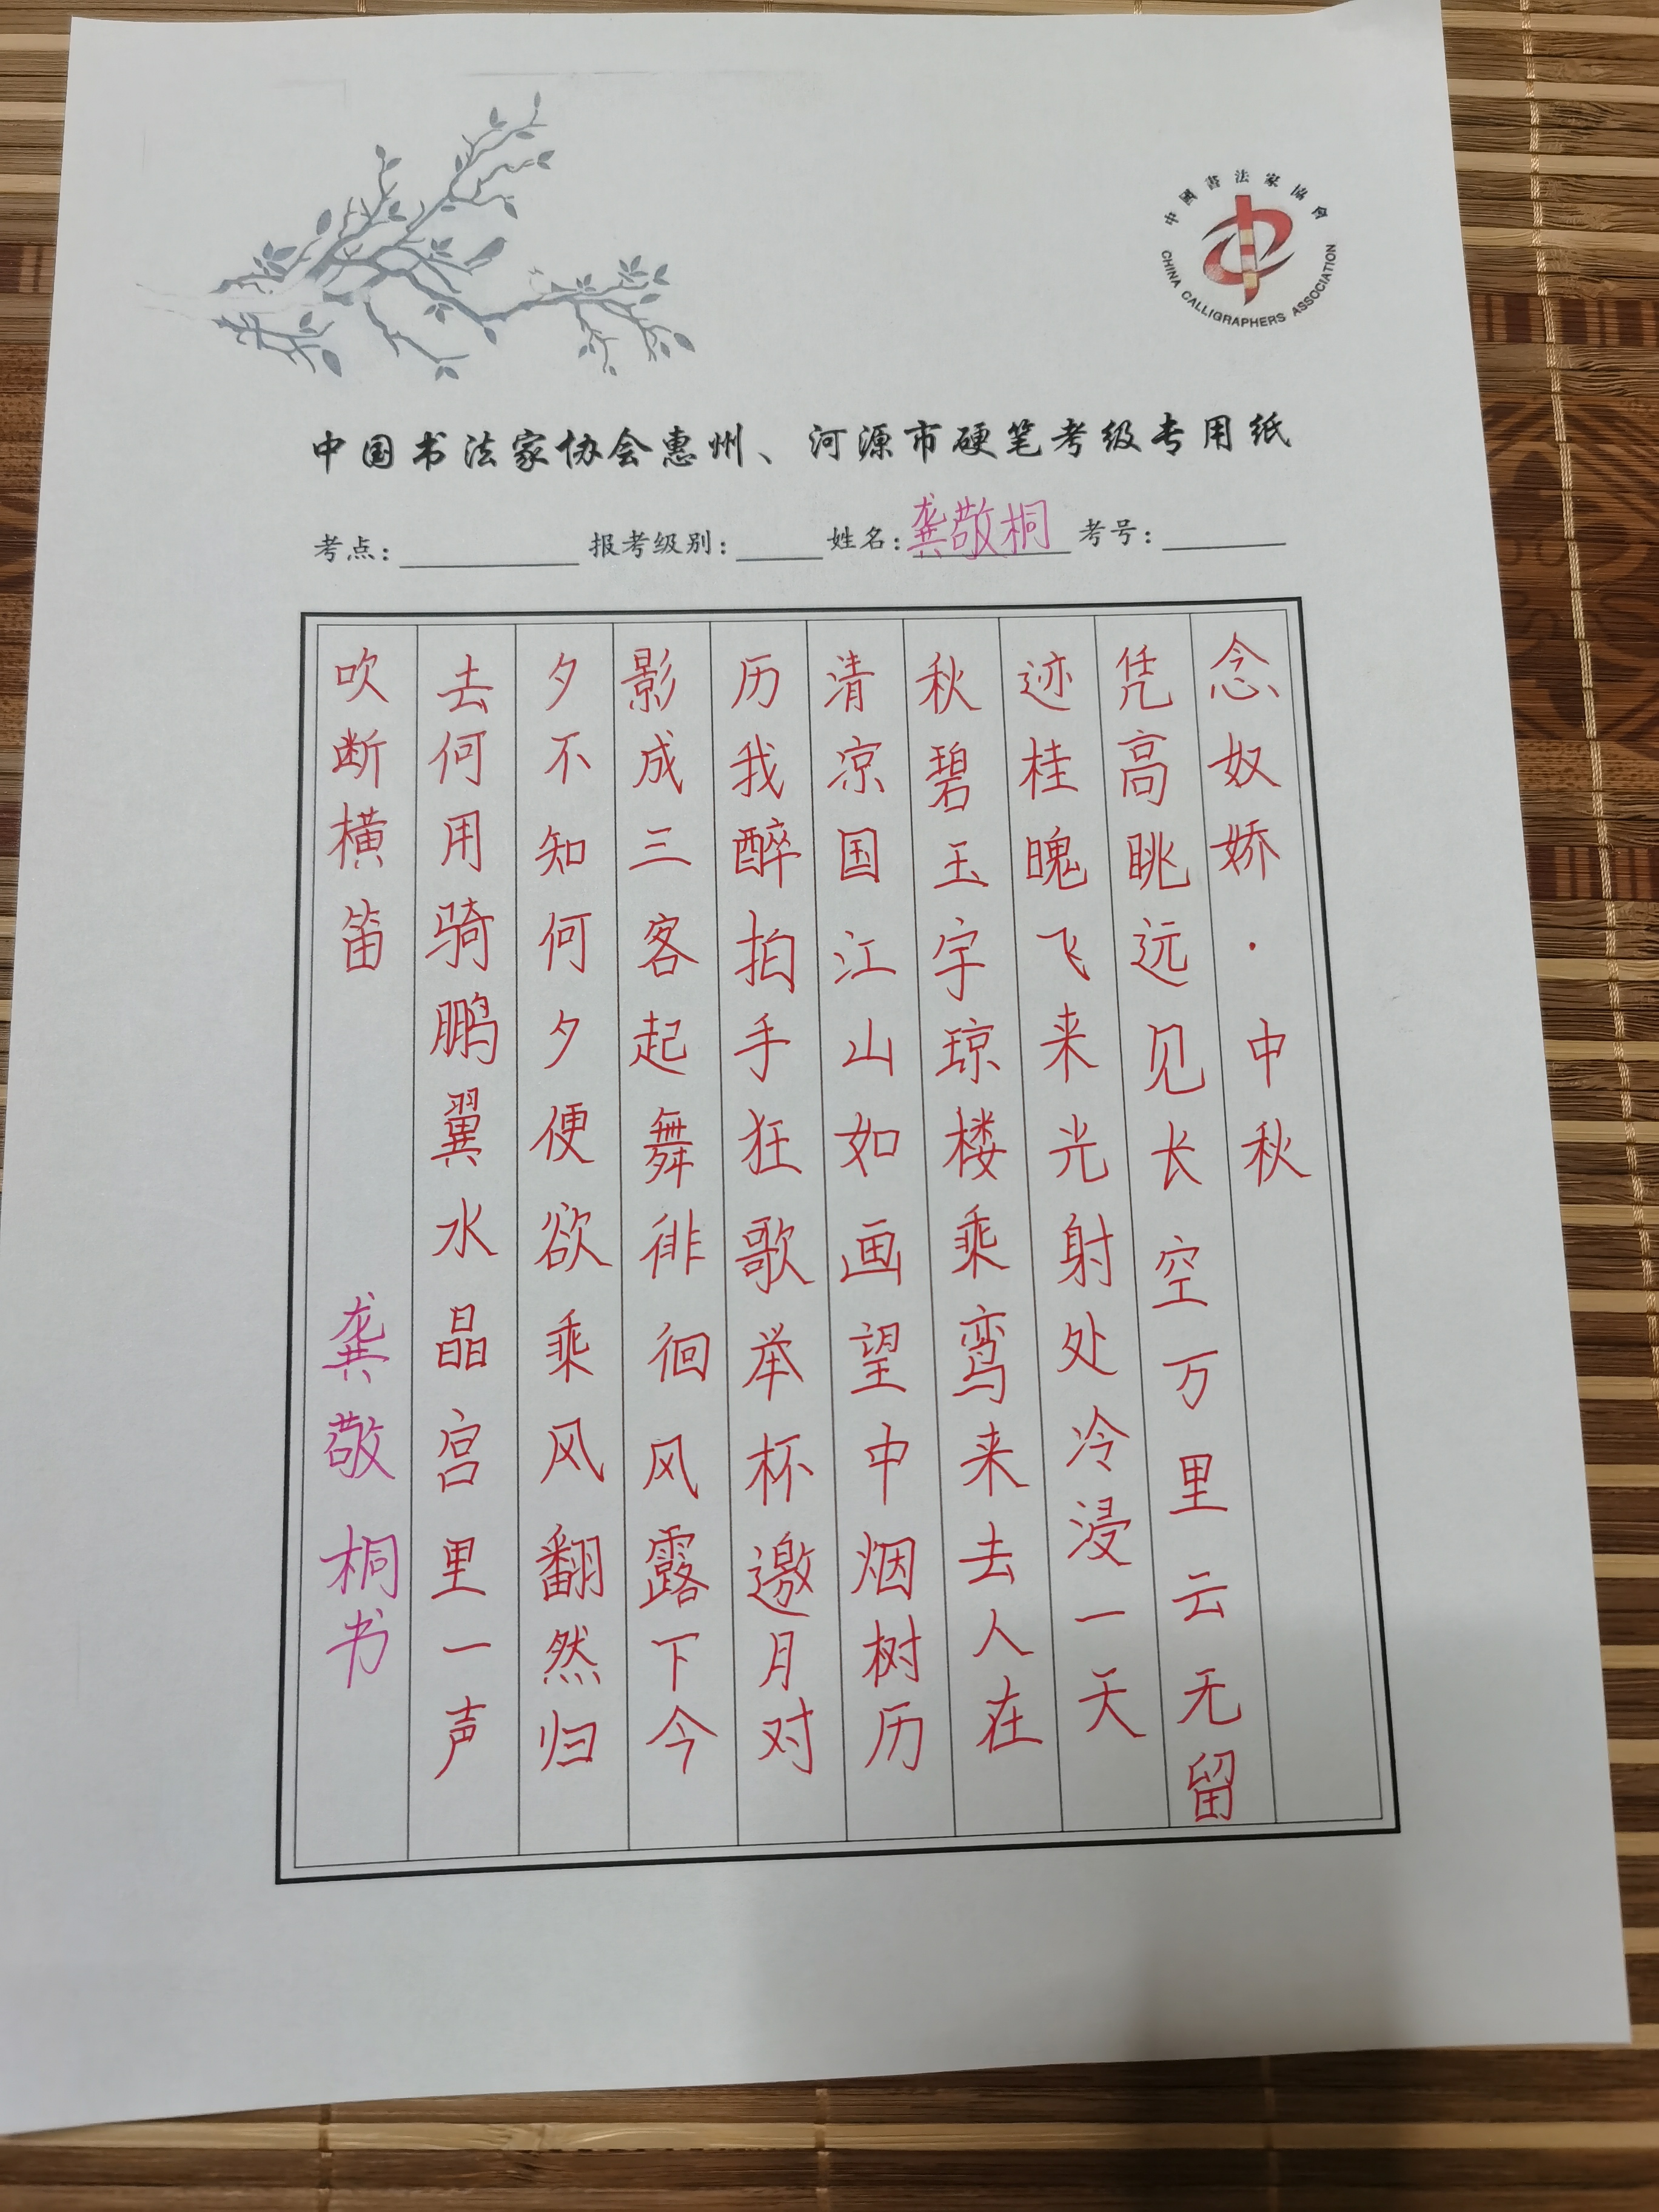 中國書法家協會
CHINA CALLIGRAPHERS ASSOCIATION
中国书法家协会惠州、河源市硬笔考级专用纸
考点： 报考级别： 姓名：龚敬桐 考号：
念奴娇·中秋
凭高眺远见长空万里云无留
迹桂魄飞来光射处冷浸一天
秋碧玉宇琼楼乘鸾来去人在
清凉国江山如画望中烟树历
历我醉拍手狂歌举杯邀月对
影成三客起舞徘徊风露下今
夕不知何夕便欲乘风翻然归
去何用骑鹏翼水晶宫里一声
吹断横笛 龚敬桐书